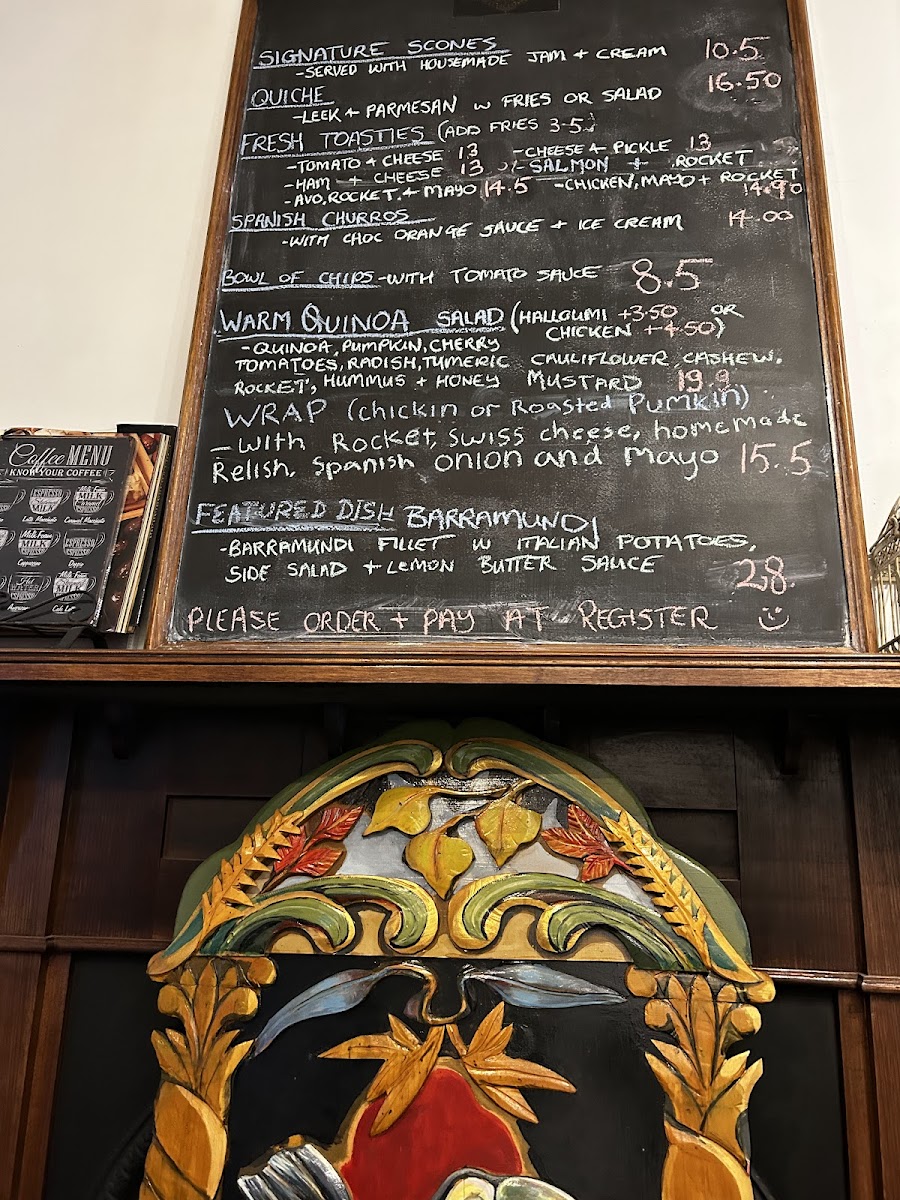 SIGNATURE SCONES 10.5
-SERVED WITH HOUSEMADE JAM + CREAM
QUICHE 16.50
-LEEK + PARMESAN W FRIES OR SALAD
FRESH TOASTIES (ADD FRIES 3-5)
-TOMATO + CHEESE 13 -CHEESE + PICKLE 13
-HAM + CHEESE 13 -SALMON + ROCKET
-AVO, ROCKET + MAYO 14.5 -CHICKEN, MAYO + ROCKET 14.90
SPANISH CHURROS 14.00
-WITH CHOC ORANGE SAUCE + ICE CREAM
BOWL OF CHIPS -WITH TOMATO SAUCE 8.5
WARM QUINOA SALAD (HALLOUMI +3.50 OR
CHICKEN +4.50)
-QUINOA, PUMPKIN, CHERRY
TOMATOES, RADISH, TUMERIC CAULIFLOWER CASHEW.
ROCKET, HUMMUS + HONEY MUSTARD 19.9
WRAP (chickin or Roasted Pumkin)
-with Rocket, swiss cheese, homemade
Relish, spanish onion and mayo 15.5
FEATURED DISH BARRAMUNDI
-BARRAMUNDI FILLET W ITALIAN POTATOES,
SIDE SALAD + LEMON BUTTER SAUCE 28.
PLEASE ORDER + PAY AT REGISTER
Coffee MENU
KNOW YOUR COFFEE